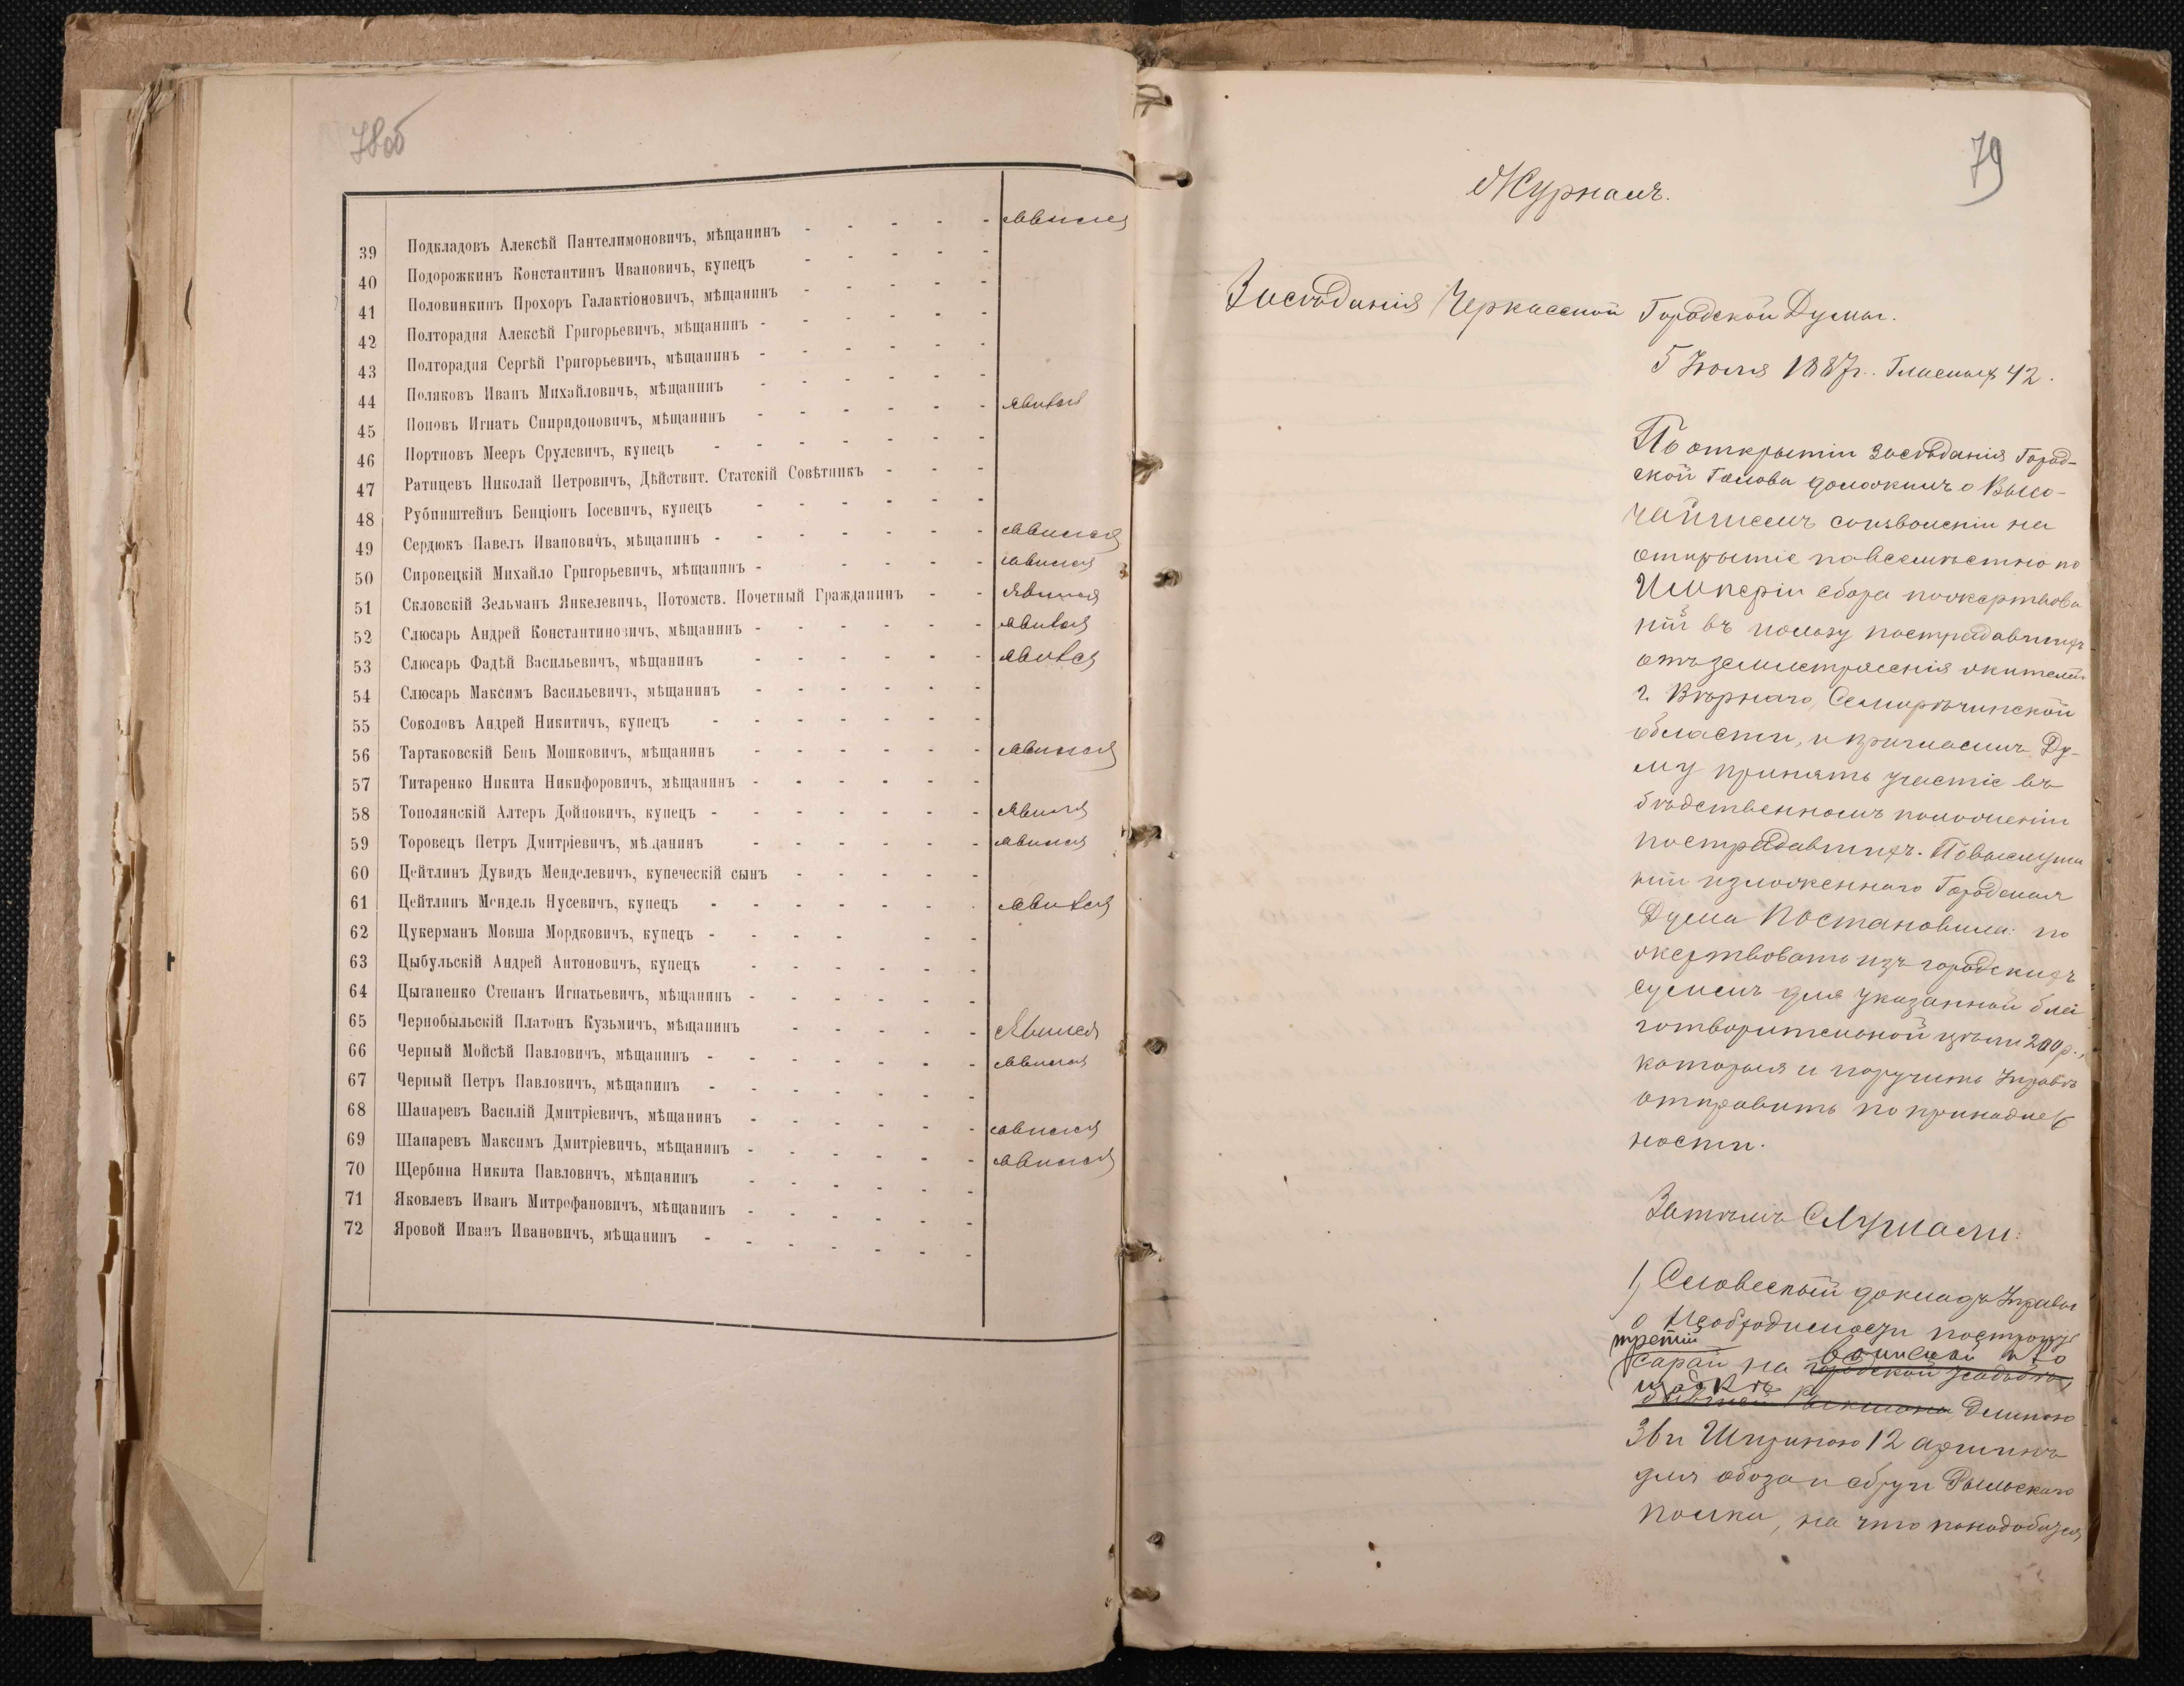 78об
39 Подкладовъ Алексѣй Пантелимоновичъ, мѣщанинъ - - - - - явился
40 Подорожкинъ Константинъ Ивановичъ, купецъ - - - - -
41 Половинкинъ Прохоръ Галактіоновичъ, мѣщанинъ - - - - -
42 Полторадня Алексѣй Григорьевичъ, мѣщанинъ - - - - - -
43 Полторадня Сергѣй Григорьевичъ, мѣщанинъ - - - - - -
44 Поляковъ Иванъ Михайловичъ, мѣщанинъ - - - - - -
45 Поповъ Игнатъ Спиридоновичъ, мѣщанинъ - - - - - - явился
46 Портновъ Мееръ Срулевичъ, купецъ - - - - - - -
47 Ратицевъ Николай Петровичъ, Дѣйствит. Статскій Совѣтникъ - - -
48 Рубинштейнъ Бенціонъ Іосевичъ, купецъ - - - - - -
49 Сердюкъ Павелъ Ивановичъ, мѣщанинъ - - - - - - - явился
50 Сировецкій Михайло Григорьевичъ, мѣщанинъ - - - - - явился
51 Скловскій Зельманъ Янкелевичъ, Потомств. Почетный Гражданинъ - - явился
52 Слюсарь Андрей Константиновичъ, мѣщанинъ - - - - - - явился
53 Слюсарь Фадѣй Васильевичъ, мѣщанинъ - - - - - - явился
54 Слюсарь Максимъ Васильевичъ, мѣщанинъ - - - - - -
55 Соколовъ Андрей Никитичъ, купецъ - - - - - - -
56 Тартаковскій Бень Мошковичъ, мѣщанинъ - - - - - - явился
57 Титаренко Никита Никифоровичъ, мѣщанинъ - - - - - -
58 Тополянскій Алтеръ Дойновичъ, купецъ - - - - - - - явился
59 Торовецъ Петръ Дмитріевичъ, мѣщанинъ - - - - - - явился
60 Цейтлинъ Дувидъ Менделевичъ, купеческій сынъ - - - - -
61 Цейтлинъ Мендель Нусевичъ, купецъ - - - - - - - явился
62 Цукерманъ Мовша Мордковичъ, купецъ - - - - - -
63 Цыбульскій Андрей Антоновичъ, купецъ - - - - - -
64 Цыганенко Степанъ Игнатьевичъ, мѣщанинъ - - - - - -
65 Чернобыльскій Платонъ Кузьмичъ, мѣщанинъ - - - - - Явился
66 Черный Мойсѣй Павловичъ, мѣщанинъ - - - - - - - явился
67 Черный Петръ Павловичъ, мѣщанинъ - - - - - - -
68 Шапаревъ Василій Дмитріевичъ, мѣщанинъ - - - - - - явился
69 Шапаревъ Максимъ Дмитріевичъ, мѣщанинъ - - - - - - явился
70 Щербина Никита Павловичъ, мѣщанинъ - - - - - -
71 Яковлевъ Иванъ Митрофановичъ, мѣщанинъ - - - - - -
72 Яровой Иванъ Ивановичъ, мѣщанинъ - - - - - - -
79
Журналъ.
Засѣданія Черкасской Городской Думы.
5 Іюля 1887 г. Гласныхъ 42.
По открытіи засѣданія Город-
ской Голова доложилъ о Высо-
чайшемъ соизволеніи на
открытіе повсемѣстно по
Имперіи сбора пожертвова
ній въ пользу пострадавшихъ
отъ землетрясенія жителей
г. Вѣрнаго, Семирѣчинской
области, и пригласилъ Ду-
му принять участіе въ
бѣдственномъ положеніи
пострадавшихъ. По выслуша
ніи изложеннаго Городская
Дума Постановила: по
жертвовать изъ городскихъ
суммъ для указанной бла
готворительной цѣли 200 р.,
которыя и поручить Управѣ
отправить по принадлеж
ности.
Затѣмъ Слушали:
1) Словесный докладъ Управы
о необходимости построить
третій
сарай на городской усадьбѣ
воинской пло
щадкѣ
бывшей длиною
36 и Шириною 12 аршинъ
для обоза и сбруи Рыльскаго
полка, на что понадобится